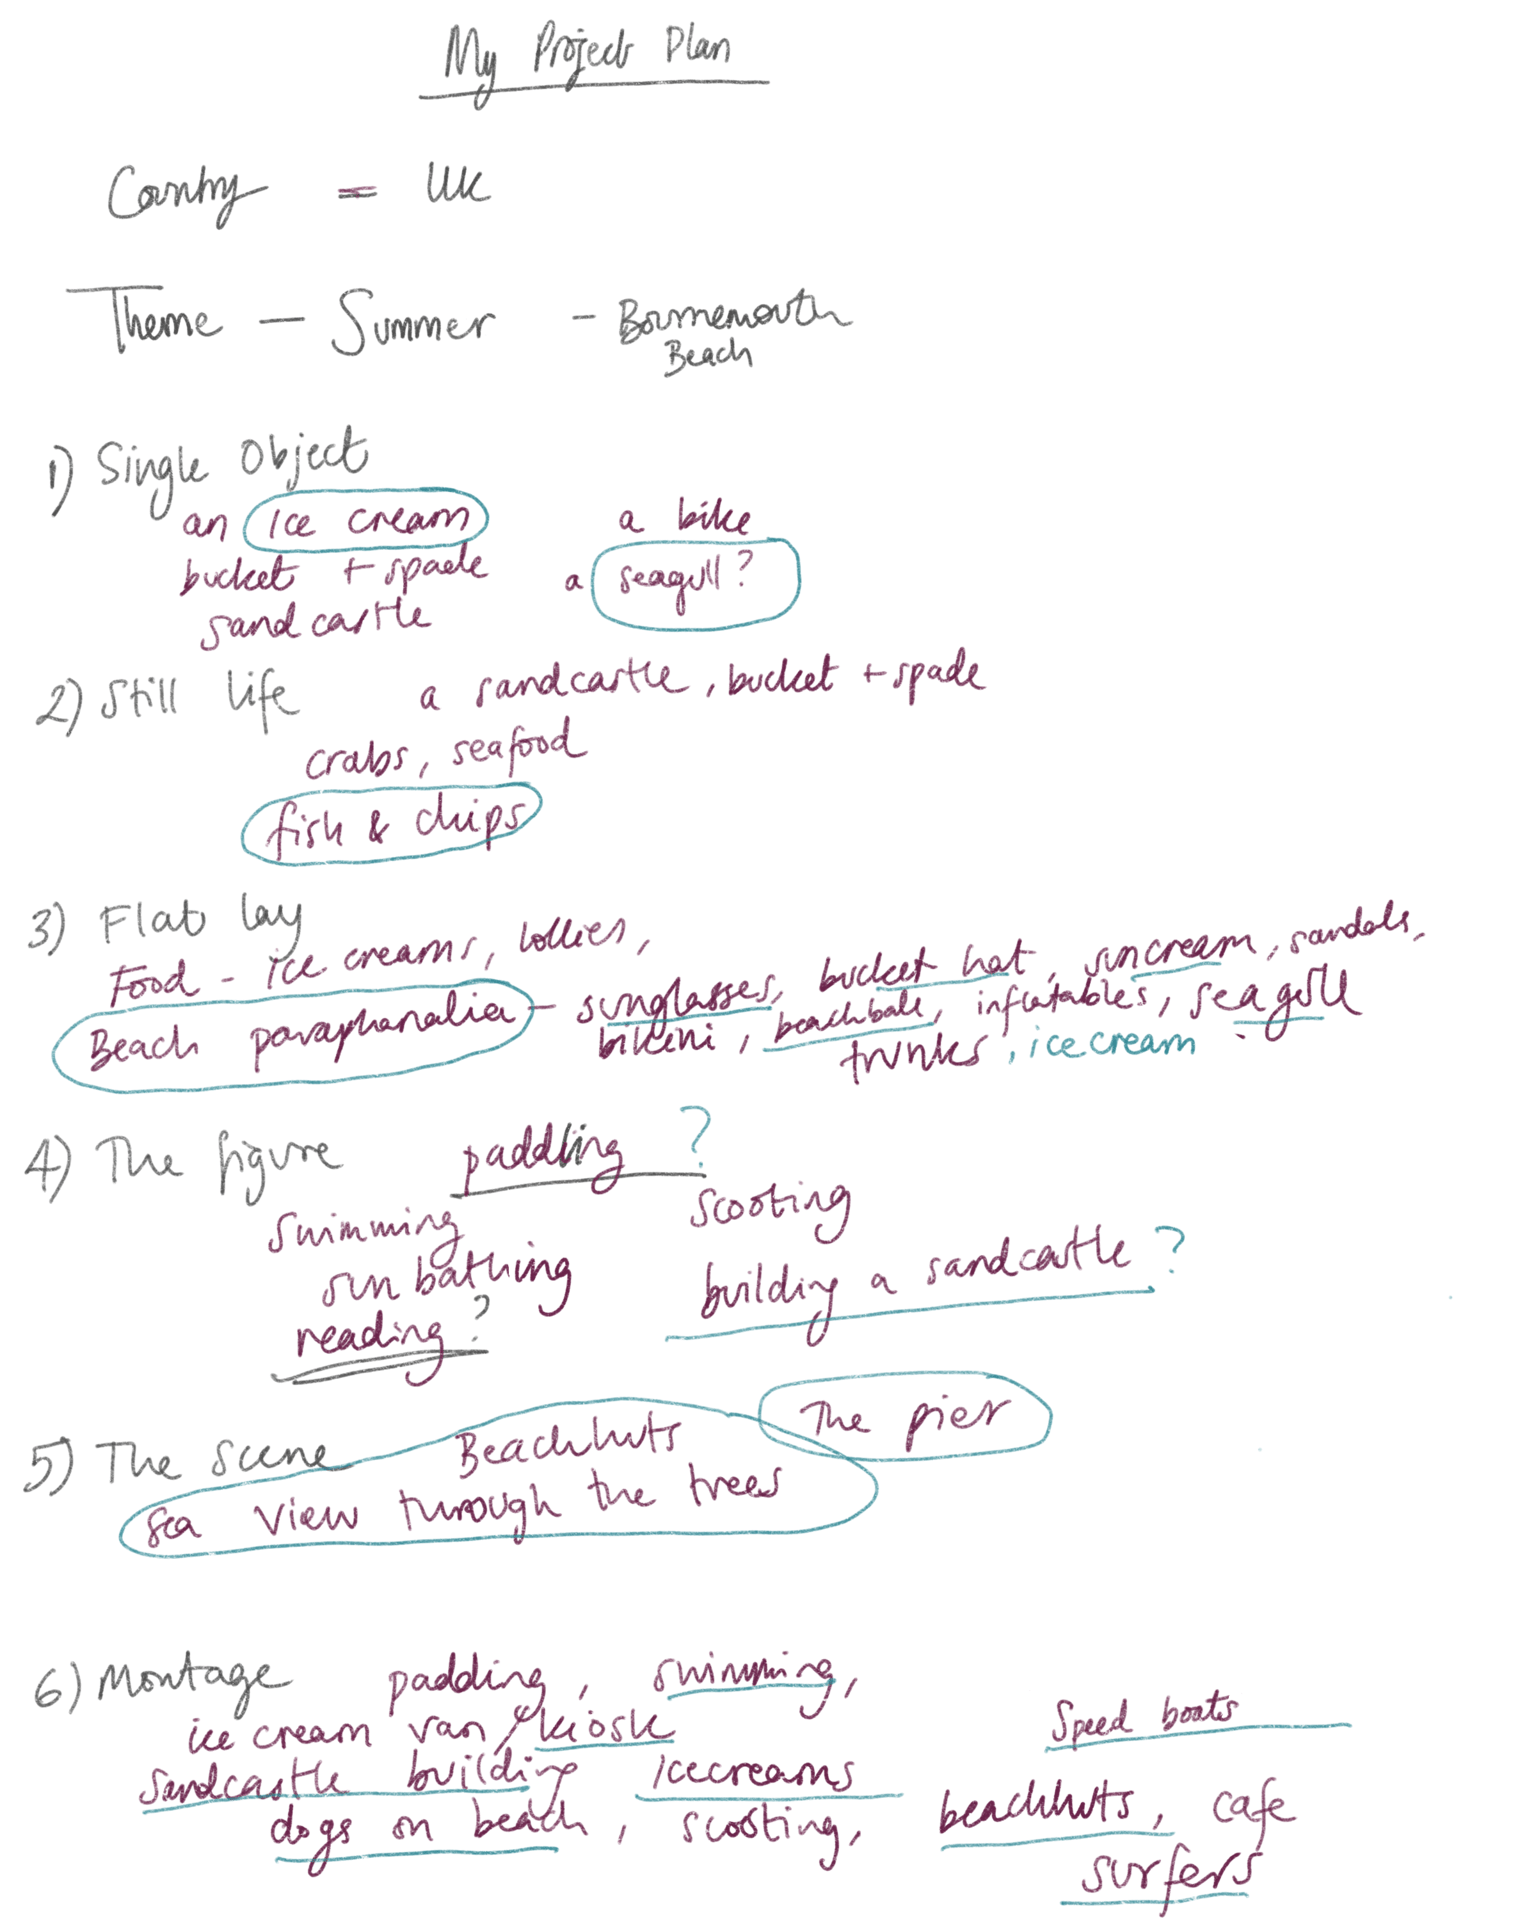 My Project Plan
Country = UK
Theme - Summer - Bournemouth
Beach
1) Single Object
an ice cream a bike
bucket + spade a seagull?
sandcastle
2) Still life a sandcastle, bucket + spade
crabs, seafood
fish & chips
3) Flat lay
Food - ice creams, lollies,
Beach paraphanalia - sunglasses, bucket hat, suncream, sandals,
bikini, beachball, inflatables, seagull
trunks, icecream
4) The figure paddling ?
swimming scooting
sun bathing building a sandcastle ?
reading ?
5) The Scene Beachhuts The pier
Sea view through the trees
6) Montage padding, swimming,
ice cream van / kiosk Speed boats
Sandcastle building Icecreams
dogs on beach, scooting, beachhuts, cafe
surfers